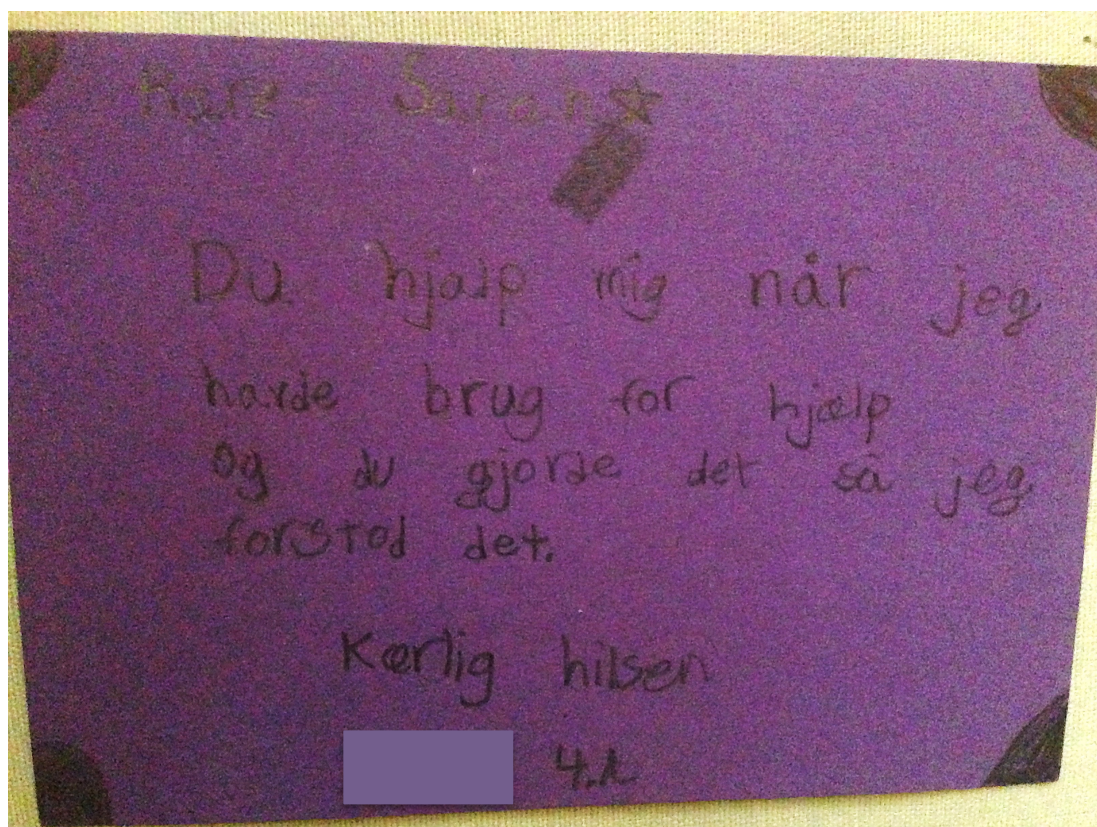 Kære Sarah
Du hjalp mig når jeg
havde brug for hjælp
og du gjorde det så jeg
forstod det.
Kærlig hilsen